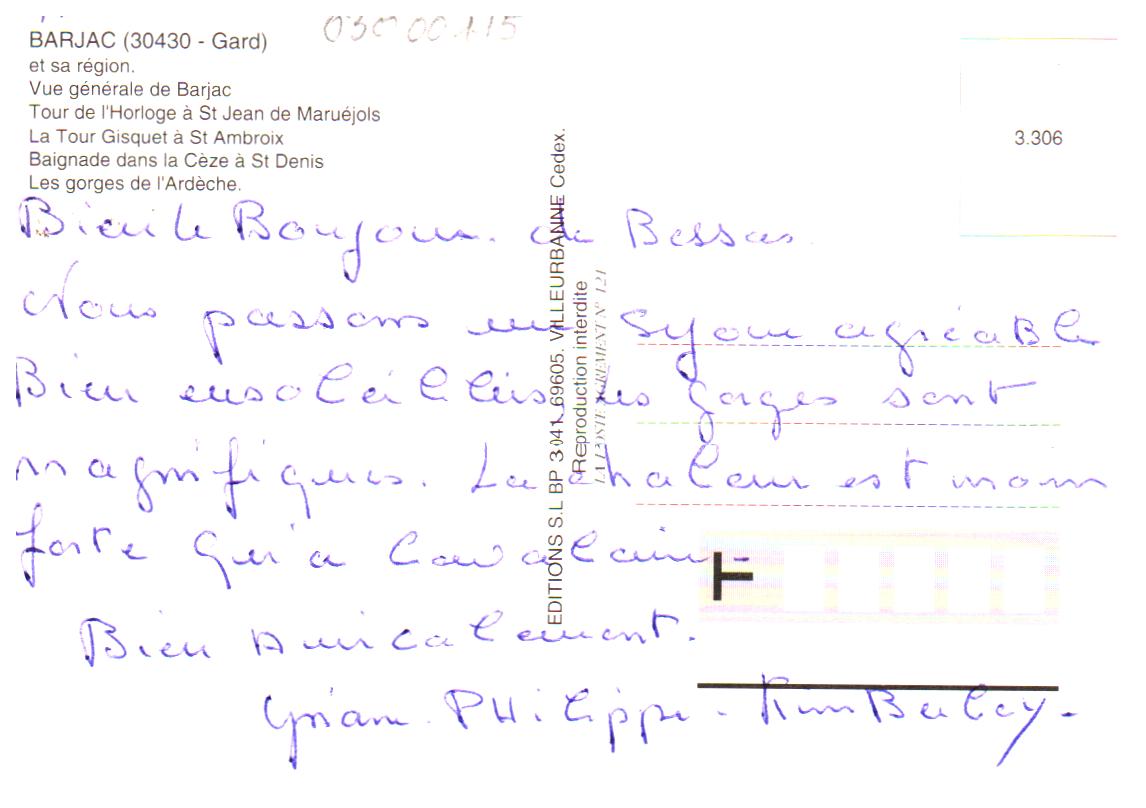 030 00.115
BARJAC (30430 - Gard)
et sa région.
Vue générale de Barjac
Tour de l'Horloge à St Jean de Maruéjols
La Tour Gisquet à St Ambroix
Baignade dans la Cèze à St Denis
Les gorges de l'Ardèche.
3.306
EDITIONS S.L BP 3041. 69605. VILLEURBANNE Cedex.
Reproduction interdite
LA POSTE AGREMENT N° 121
Bien le Bonjour. de Bessas.
Nous passons un Séjour agréable
Bien ensoleillés, les gorges sont
magnifiques. La chaleur est moins
forte qu'a Cavalaire-
Bien Amicalement.
PHilippe - Kimberley-
T